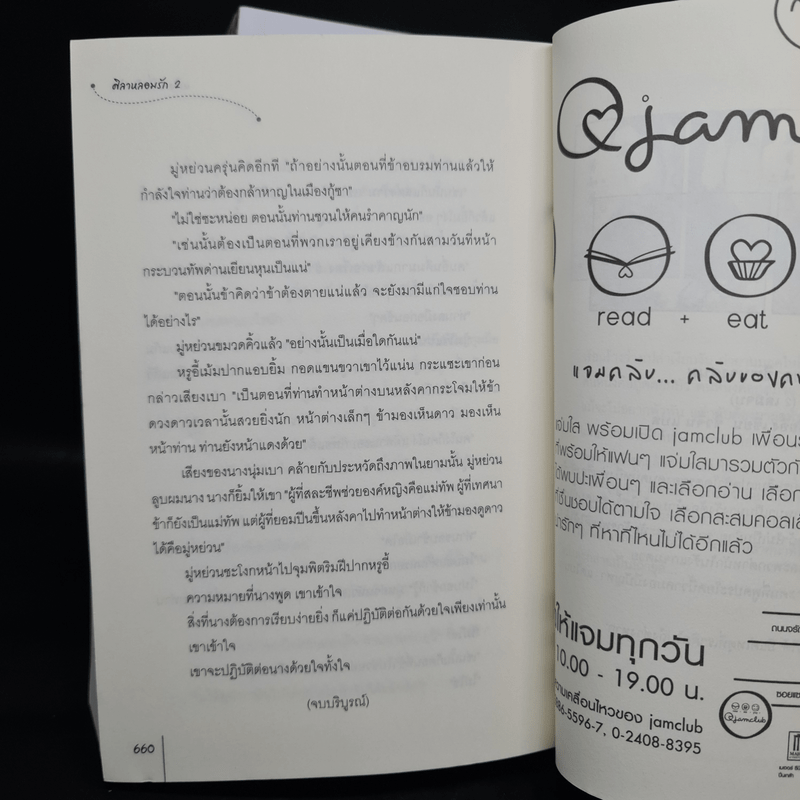 ศิลาหลอมรัก 2
มู่หย่วนครุ่นคิดอีกที "ถ้าอย่างนั้นตอนที่ข้าอบรมท่านแล้วให้
กำลังใจท่านว่าต้องกล้าหาญในเมืองกู้ซา"
"ไม่ใช่ซะหน่อย ตอนนั้นท่านชวนให้คนรำคาญนัก"
"เช่นนั้นต้องเป็นตอนที่พวกเราอยู่เคียงข้างกันสามวันที่หน้า
กระบวนทัพด่านเยียนหุนเป็นแน่"
"ตอนนั้นข้าคิดว่าข้าต้องตายแน่แล้ว จะยังมามีแก่ใจชอบท่าน
ได้อย่างไร"
มู่หย่วนขมวดคิ้วแล้ว "อย่างนั้นเป็นเมื่อใดกันแน่"
หรูอี้เม้มปากแอบยิ้ม กอดแขนขวาเขาไว้แน่น กระแซะเขาก่อน
กล่าวเสียงเบา "เป็นตอนที่ท่านทำหน้าต่างบนหลังคากระโจมให้ข้า
ดวงดาวเวลานั้นสวยยิ่งนัก หน้าต่างเล็กๆ ข้ามองเห็นดาว มองเห็น
หน้าท่าน ท่านยังหน้าแดงด้วย"
เสียงของนางนุ่มเบา คล้ายกับประหวัดถึงภาพในยามนั้น มู่หย่วน
ลูบผมนาง นางก็ยิ้มให้เขา "ผู้ที่สละชีพช่วยองค์หญิงคือแม่ทัพ ผู้ที่เทศนา
ข้าก็ยังเป็นแม่ทัพ แต่ผู้ที่ยอมปีนขึ้นหลังคาไปทำหน้าต่างให้ข้ามองดูดาว
ได้คือมู่หย่วน"
มู่หย่วนชะโงกหน้าไปจุมพิตริมฝีปากหรูอี้
ความหมายที่นางพูด เขาเข้าใจ
สิ่งที่นางต้องการเรียบง่ายยิ่ง ก็แค่ปฏิบัติต่อกันด้วยใจเพียงเท่านั้น
เขาเข้าใจ
เขาจะปฏิบัติต่อนางด้วยใจทั้งใจ
(จบบริบูรณ์)
660
jam
read + eat
แจมคลับ... คลับของคน
แจ่มใส พร้อมเปิด jamclub เพื่อน
ที่พร้อมให้แฟนๆ แจ่มใสมารวมตัวกั
ได้พบปะเพื่อนๆ และเลือกอ่าน เลือก
ที่ชื่นชอบได้ตามใจ เลือกสะสมคอลเล
น่ารักๆ ที่หาที่ไหนไม่ได้อีกแล้ว
ให้แจมทุกวัน
10.00 - 19.00 น.
ความเคลื่อนไหวของ jamclub
86-5596-7, 0-2408-8395
jamclub